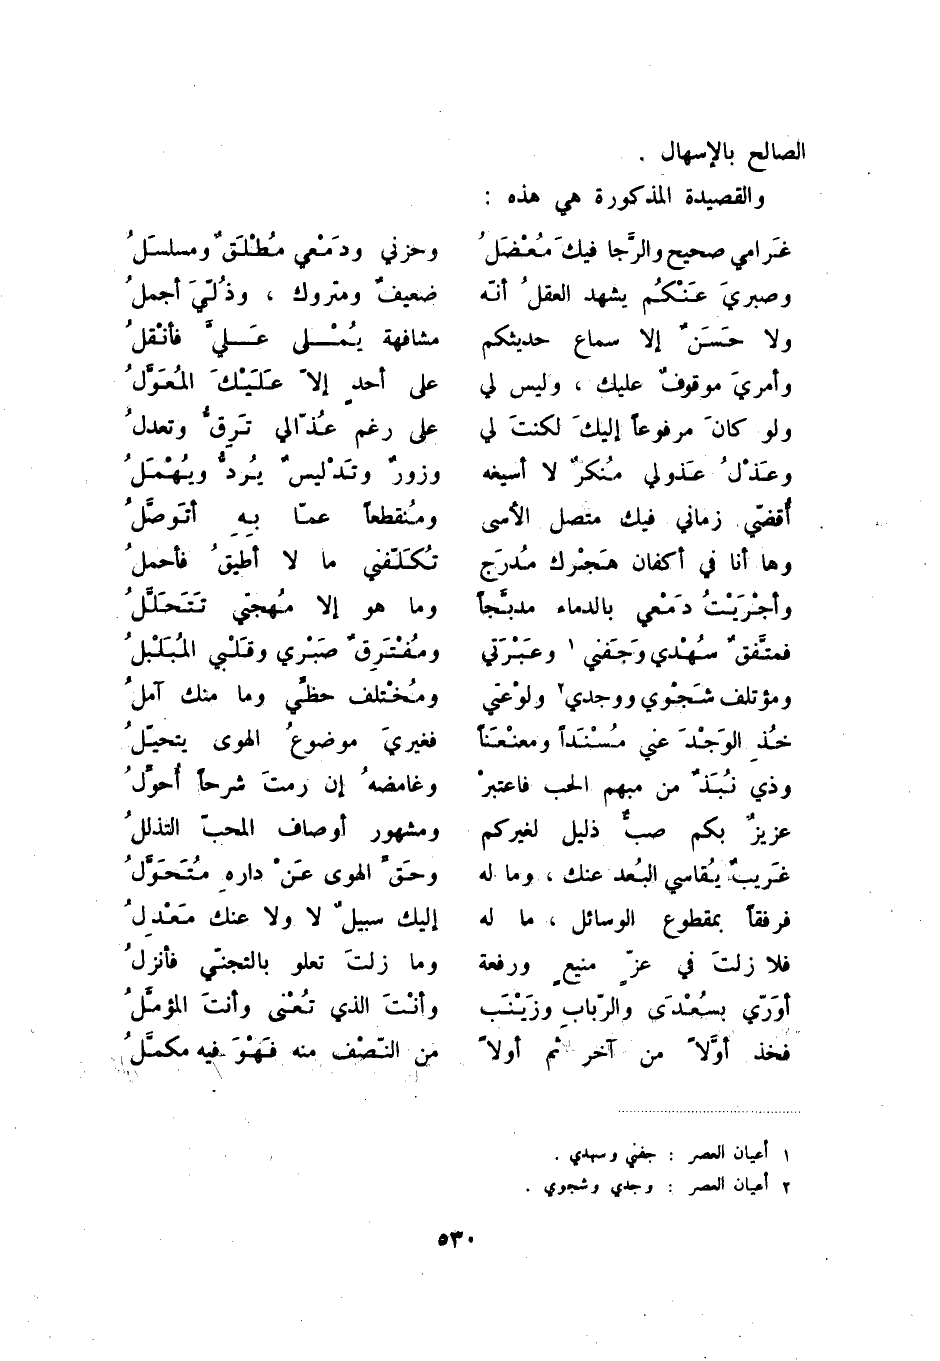 الصالح بالإسهال .
والقصيدة المذكورة هي هذه :
غَرامي صحيح والرَّجا فيكَ مُعْضَلُ وحزني ودَمْعي مُطْلَقٌ ومسلسَلُ
وصبريَ عَنْكُم يشهد العقلُ أنّه ضعيفٌ ومتروك ، وذُلّيَ أجملُ
ولا حَسَنٌ إلا سماع حديثكم مشافهة يُمْلى عَليَّ فأنْقلُ
وأمريَ موقوفٌ عليك ، وليس لي على أحدٍ إلاّ عَلَيْكَ المُعَوَّلُ
ولو كانَ مرفوعاً إليكَ لكنتَ لي على رغم عُذّالي تَرِقُّ وتعدلُ
وعَذْلُ عَذولي مُنكرٌ لا أسيغه وزورٌ وتَدْليسٌ يُردُّ ويُهْمَلُ
أُقضّي زماني فيك متصل الأسى ومُنقطعاً عمّا بِهِ أتوصَّلُ
وها أنا في أكفان هَجْرك مُدرَج تُكلّفني ما لا أطيقُ فأحملُ
وأجْرَيْتُ دَمْعي بالدماء مدبَّجاً وما هو إلا مُهجتي تَتَحَلَّلُ
فمتَّفقٌ سُهْدي وَجَفني ١ وعَبْرَتي ومُفْتَرِقٌ صَبْري وقَلْبي المُبَلْبلُ
ومؤتلف شَجْوي ووجدي٢ ولوْعتي ومُخْتلف حظّي وما منك آملُ
خُذِ الوَجْدَ عني مُسْنَداً ومعنْعَناً فغيريَ موضوعُ الهوى يتحيّلُ
وذي نُبَذٌ من مبهم الحب فاعتبرْ وغامضهُ إن رمتَ شرحاً أُحوِّلُ
عزيزٌ بكم صبٌّ ذليل لغيركم ومشهور أوصاف المحبّ التذللُ
غَريبٌ يُقاسي البُعد عنك ، وما له وحَقِّ الهوى عَنْ داره مُتَحَوَّلُ
فرفقاً بمقطوع الوسائل ، ما له إليك سبيلٌ لا ولا عنك مَعْدِلُ
فلا زلتَ في عزّ منيعٍ ورفعة وما زلتَ تعلو بالتجنّي فأنزلُ
أوَرّي بسُعْدَى والرّبابِ وزَيْنَب وأنْتَ الذي تُعْنى وأنتَ المؤمَّلُ
فخذ أوَّلاً من آخر ثم أولاً من النّصْف منه فَهْوَ فيه مكمَّلُ
١ أعيان العصر : جفني وسهدي .
٢ أعيان العصر : وجدي وشجوي .
٥٣٠